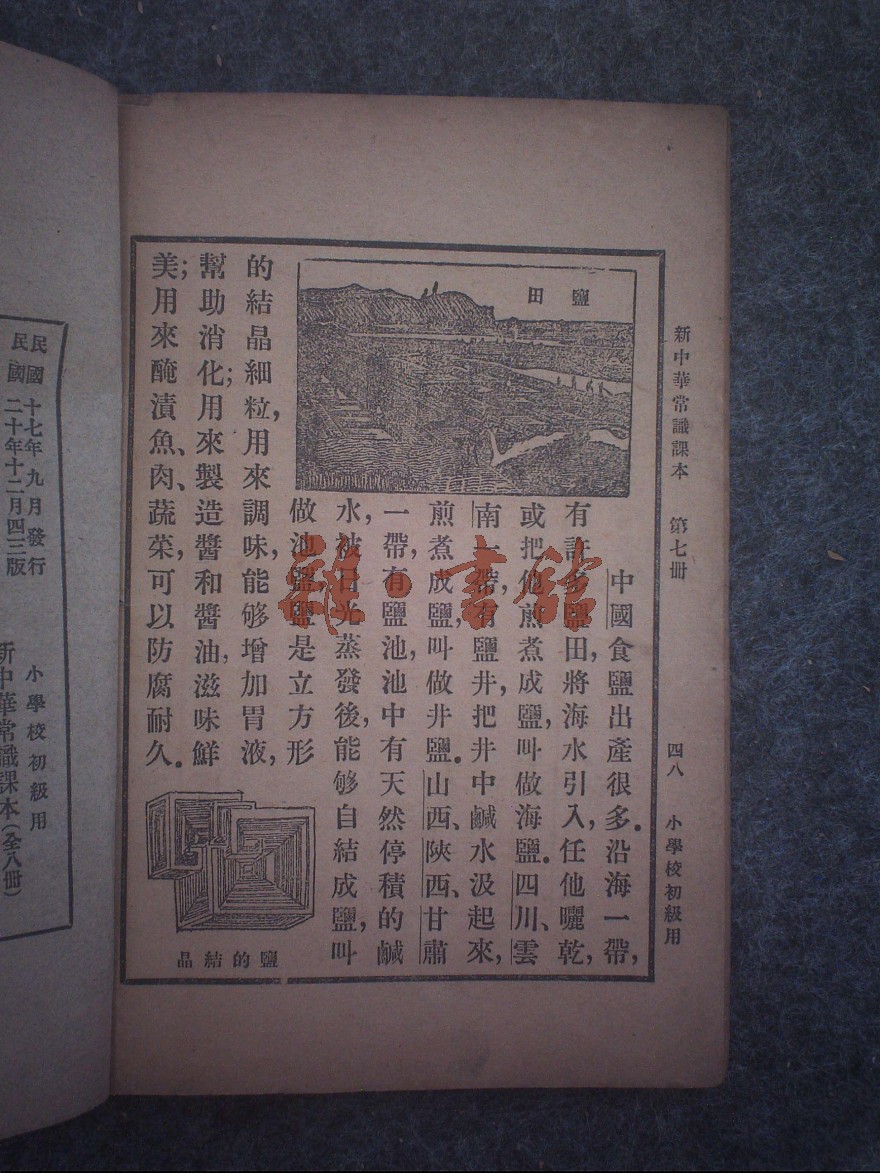 新中華常識課本 第七冊
四八 小學校初級用
鹽田
中國食鹽出產很多。沿海一帶,
有許多鹽田,將海水引入,任他曬乾,
或把他煎煮成鹽,叫做海鹽。四川、雲
南一帶,有鹽井,把井中鹹水汲起來,
煎煮成鹽,叫做井鹽。山西、陝西、甘肅
一帶,有鹽池,池中有天然停積的鹹
水,被日光蒸發後,能够自結成鹽,叫
做池鹽。鹽是立方形
的結晶細粒,用來調味,能够增加胃液,
幫助消化;用來製造醬和醬油,滋味鮮
美;用來醃漬魚、肉、蔬菜,可以防腐耐久。
鹽的結晶
雜·書館
民國十七年九月發行
民國二十年十二月四三版
小學校初級用
新中華常識課本(全八冊)